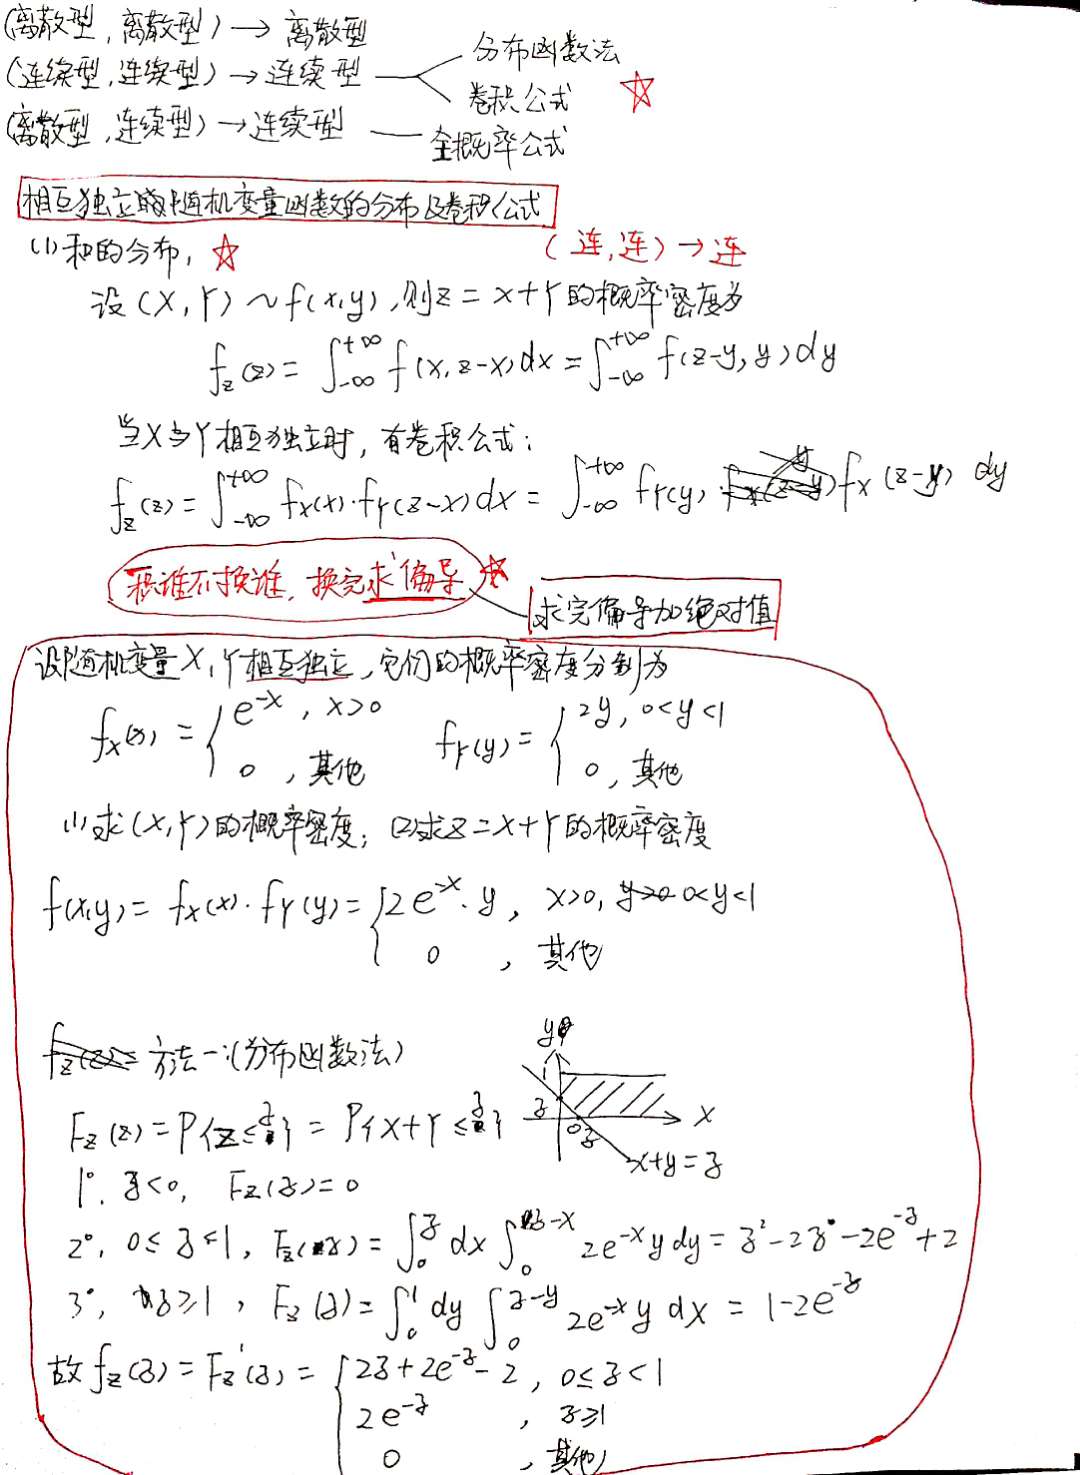 (离散型,离散型)→离散型
(连续型,连续型)→连续型
分布函数法
卷积公式 ☆
(离散型,连续型)→连续型
全概率公式
相互独立的随机变量函数的分布及卷积公式
(1)和的分布, ☆ (连,连)→连
设(X,Y)~f(x,y),则Z=X+Y的概率密度为
f_Z(z)=∫_{-∞}^{+∞}f(x,z-x)dx=∫_{-∞}^{+∞}f(z-y,y)dy
当X与Y相互独立时,有卷积公式:
f_Z(z)=∫_{-∞}^{+∞}f_X(x)·f_Y(z-x)dx=∫_{-∞}^{+∞}f_Y(y)·f_X(z-y)dy
积谁不换谁,换完求偏导 ☆
求完偏导加绝对值
设随机变量X,Y相互独立,它们的概率密度分别为
f_X(x)={e^{-x},x>0
0,其他
f_Y(y)={2y,0<y<1
0,其他
(1)求(X,Y)的概率密度;(2)求Z=X+Y的概率密度
f(x,y)=f_X(x)·f_Y(y)={2e^{-x}·y,x>0,0<y<1
0,其他
方法一:(分布函数法)
y
1
z
0
z
x
x+y=z
F_Z(z)=P{Z≤z}=P{X+Y≤z}
1°,z<0,F_Z(z)=0
2°,0≤z<1,F_Z(z)=∫_0^z dx∫_0^{z-x}2e^{-x}ydy=z²-2z-2e^{-z}+2
3°,z≥1,F_Z(z)=∫_0^1 dy∫_0^{z-y}2e^{-x}ydx=1-2e^{-z}
故f_Z(z)=F_Z'(z)={2z+2e^{-z}-2,0≤z<1
2e^{-z},z≥1
0,其他